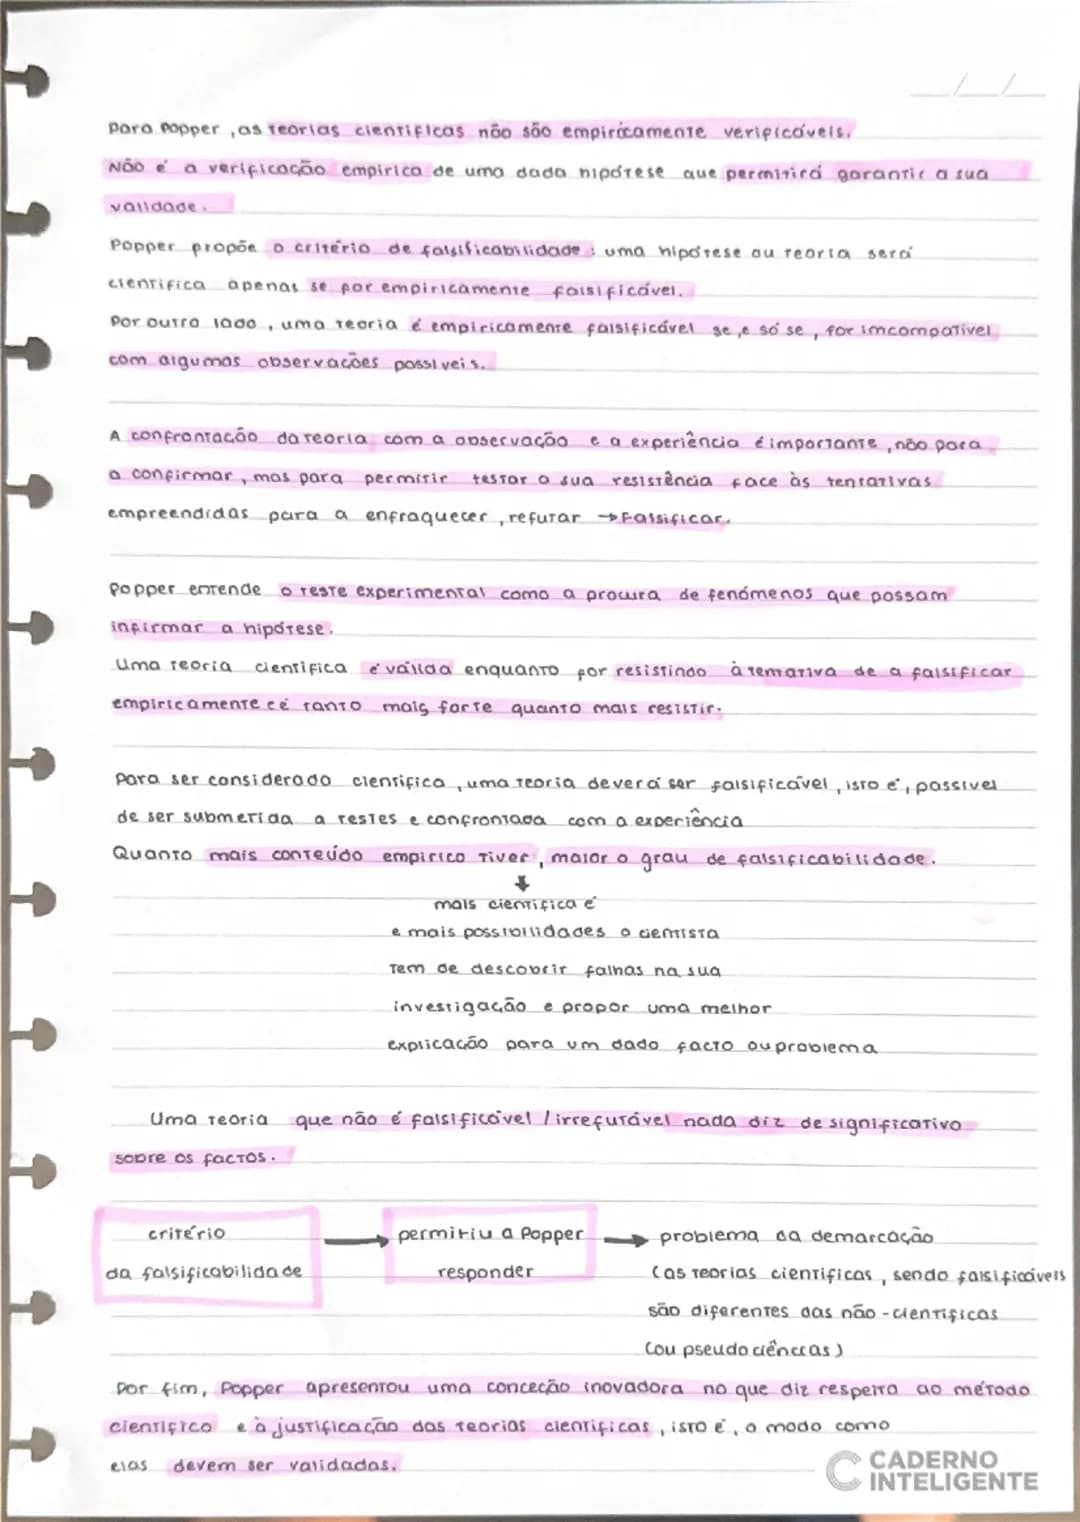 Para Popper, as teorias cientificas não são empiricamente verificáveis.
Não é a verificação empirica de uma dada hipótese que permitirá garantir a sua
validade.
Popper propõe o critério de falsificabilidade: uma hipótese ou teoria será
cientifica apenas se for empiricamente falsificável.
Por outro lado, uma teoria é empiricamente falsificável se, e só se, for imcompativel
com algumas observações possiveis.
A confrontação da teoria com a observação e a experiência é importante, não para
a confirmar, mas para permitir testar a sua resistência face às tentativas
empreendidas para a enfraquecer, refutar → Falsificar.
Popper entende o teste experimental como a procura de fenómenos que possam
infirmar a hipótese.
Uma teoria cientifica é válida enquanto for resistindo à tentativa de a falsificar
empiricamente e é tanto mais forte quanto mais resistir.
Para ser considerado cientifica, uma teoria deverá ser falsificável, isto é, passivel
de ser submetida a testes e confrontada com a experiência
Quanto mais conteúdo empirico tiver, maior o grau de falsificabilidade.
↓
mais cientifica é
e mais possibilidades o cientista
tem de descobrir falhas na sua
investigação e propor uma melhor
explicação para um dado facto ou problema
Uma teoria que não é falsificável / irrefutável nada diz de significativo
sobre os factos.
critério → permitiu a Popper → problema da demarcação
da falsificabilidade responder (as teorias cientificas, sendo falsificáveis
são diferentes das não-cientificas
(ou pseudociências)
Por fim, Popper apresentou uma conceção inovadora no que diz respeito ao método
cientifico e à justificação das teorias cientificas, isto é, o modo como
elas devem ser validadas.
CADERNO
INTELIGENTE